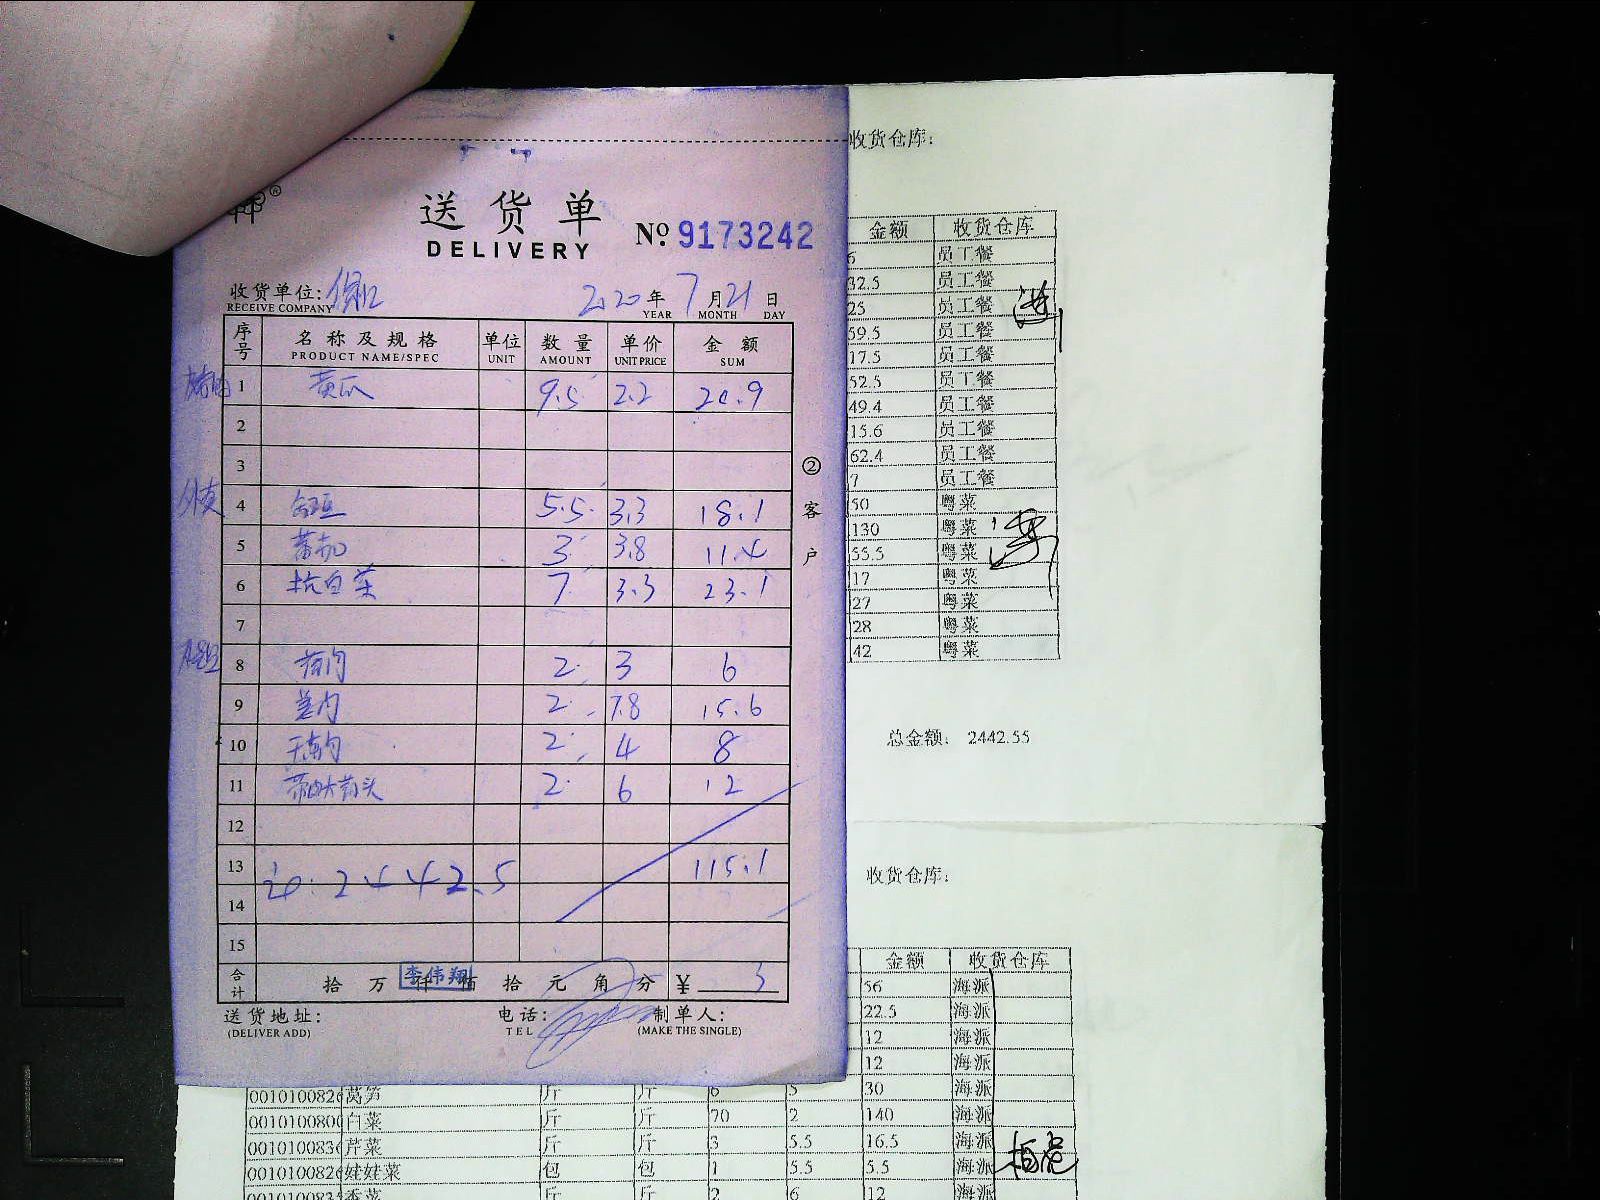 送货单
DELIVERY
№ 9173242
收货单位:
RECEIVE COMPANY
2020 年 7 月 21 日
YEAR MONTH DAY
序号 名称及规格 单位 数量 单价 金额
PRODUCT NAME/SPEC UNIT AMOUNT UNIT PRICE SUM
1 黄瓜 9.5 2.2 20.9
2
3
4 5.5 3.3 18.1
5 蕃茄 3 3.8 11.4
6 杭白菜 7 3.3 23.1
7
8 2 3 6
9 姜 2 7.8 15.6
10 2 4 8
11 2 6 12
12
13 2442.5 115.1
14
15
合计 拾 万 仟 佰 拾 元 角 分 ¥
李伟翔
送货地址:
(DELIVER ADD)
电话:
TEL
制单人:
(MAKE THE SINGLE)
② 客户
收货仓库:
金额 收货仓库
5 员工餐
32.5 员工餐
25 员工餐
59.5 员工餐
17.5 员工餐
52.5 员工餐
49.4 员工餐
15.6 员工餐
62.4 员工餐
7 员工餐
50 粤菜
130 粤菜
55.5 粤菜
17 粤菜
27 粤菜
28 粤菜
42 粤菜
总金额: 2442.55
收货仓库:
金额 收货仓库
56 海派
22.5 海派
12 海派
12 海派
001010082 莴笋 斤 斤 6 5 30 海派
001010080 白菜 斤 斤 70 2 140 海派
001010083 芹菜 斤 斤 3 5.5 16.5 海派
001010082 娃娃菜 包 包 1 5.5 5.5 海派
001010083 香菜 斤 斤 2 6 12 海派